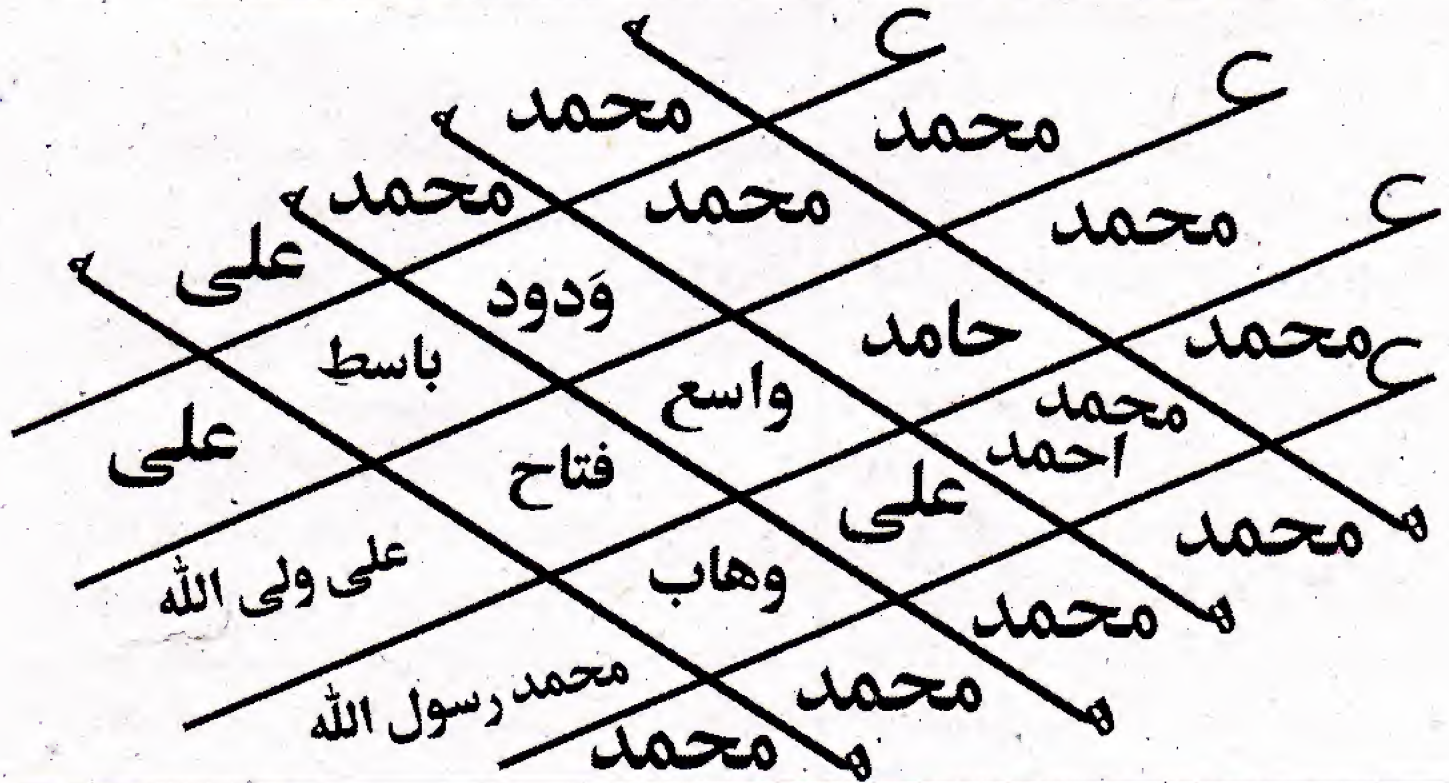 محمد محمد
محمد محمد محمد
علی وَدود حامد محمد
باسط واسع محمد احمد
علی فتاح علی محمد
علی ولی الله وهاب محمد
محمد رسول الله محمد
محمد